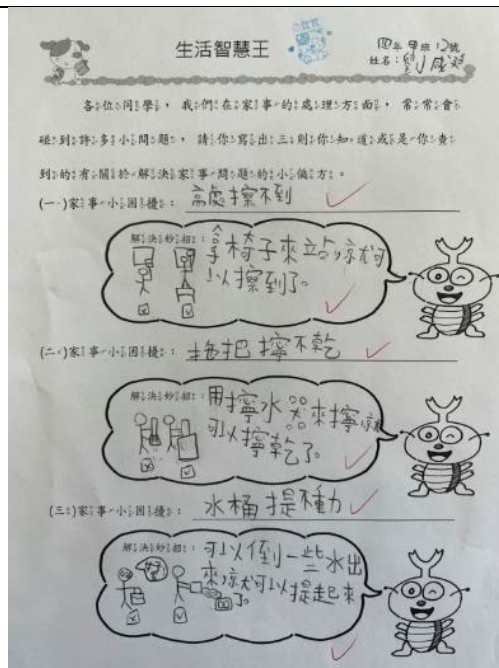 生活智慧王
四年甲班12號
姓名：劉
各位同學，我們在家事的處理方面，常常會
碰到許多小問題，請你寫出三則你知道或是你查
到的有關於解決家事問題的小偏方。
(一)家事小困擾：高處擦不到
解決妙招：拿椅子來站就可
以擦到了。
(二)家事小困擾：拖把擰不乾
解決妙招：用擰水器來擰就
可以擰乾了。
(三)家事小困擾：水桶提不動
解決妙招：可以倒一些水出
來就可以提起來
了。